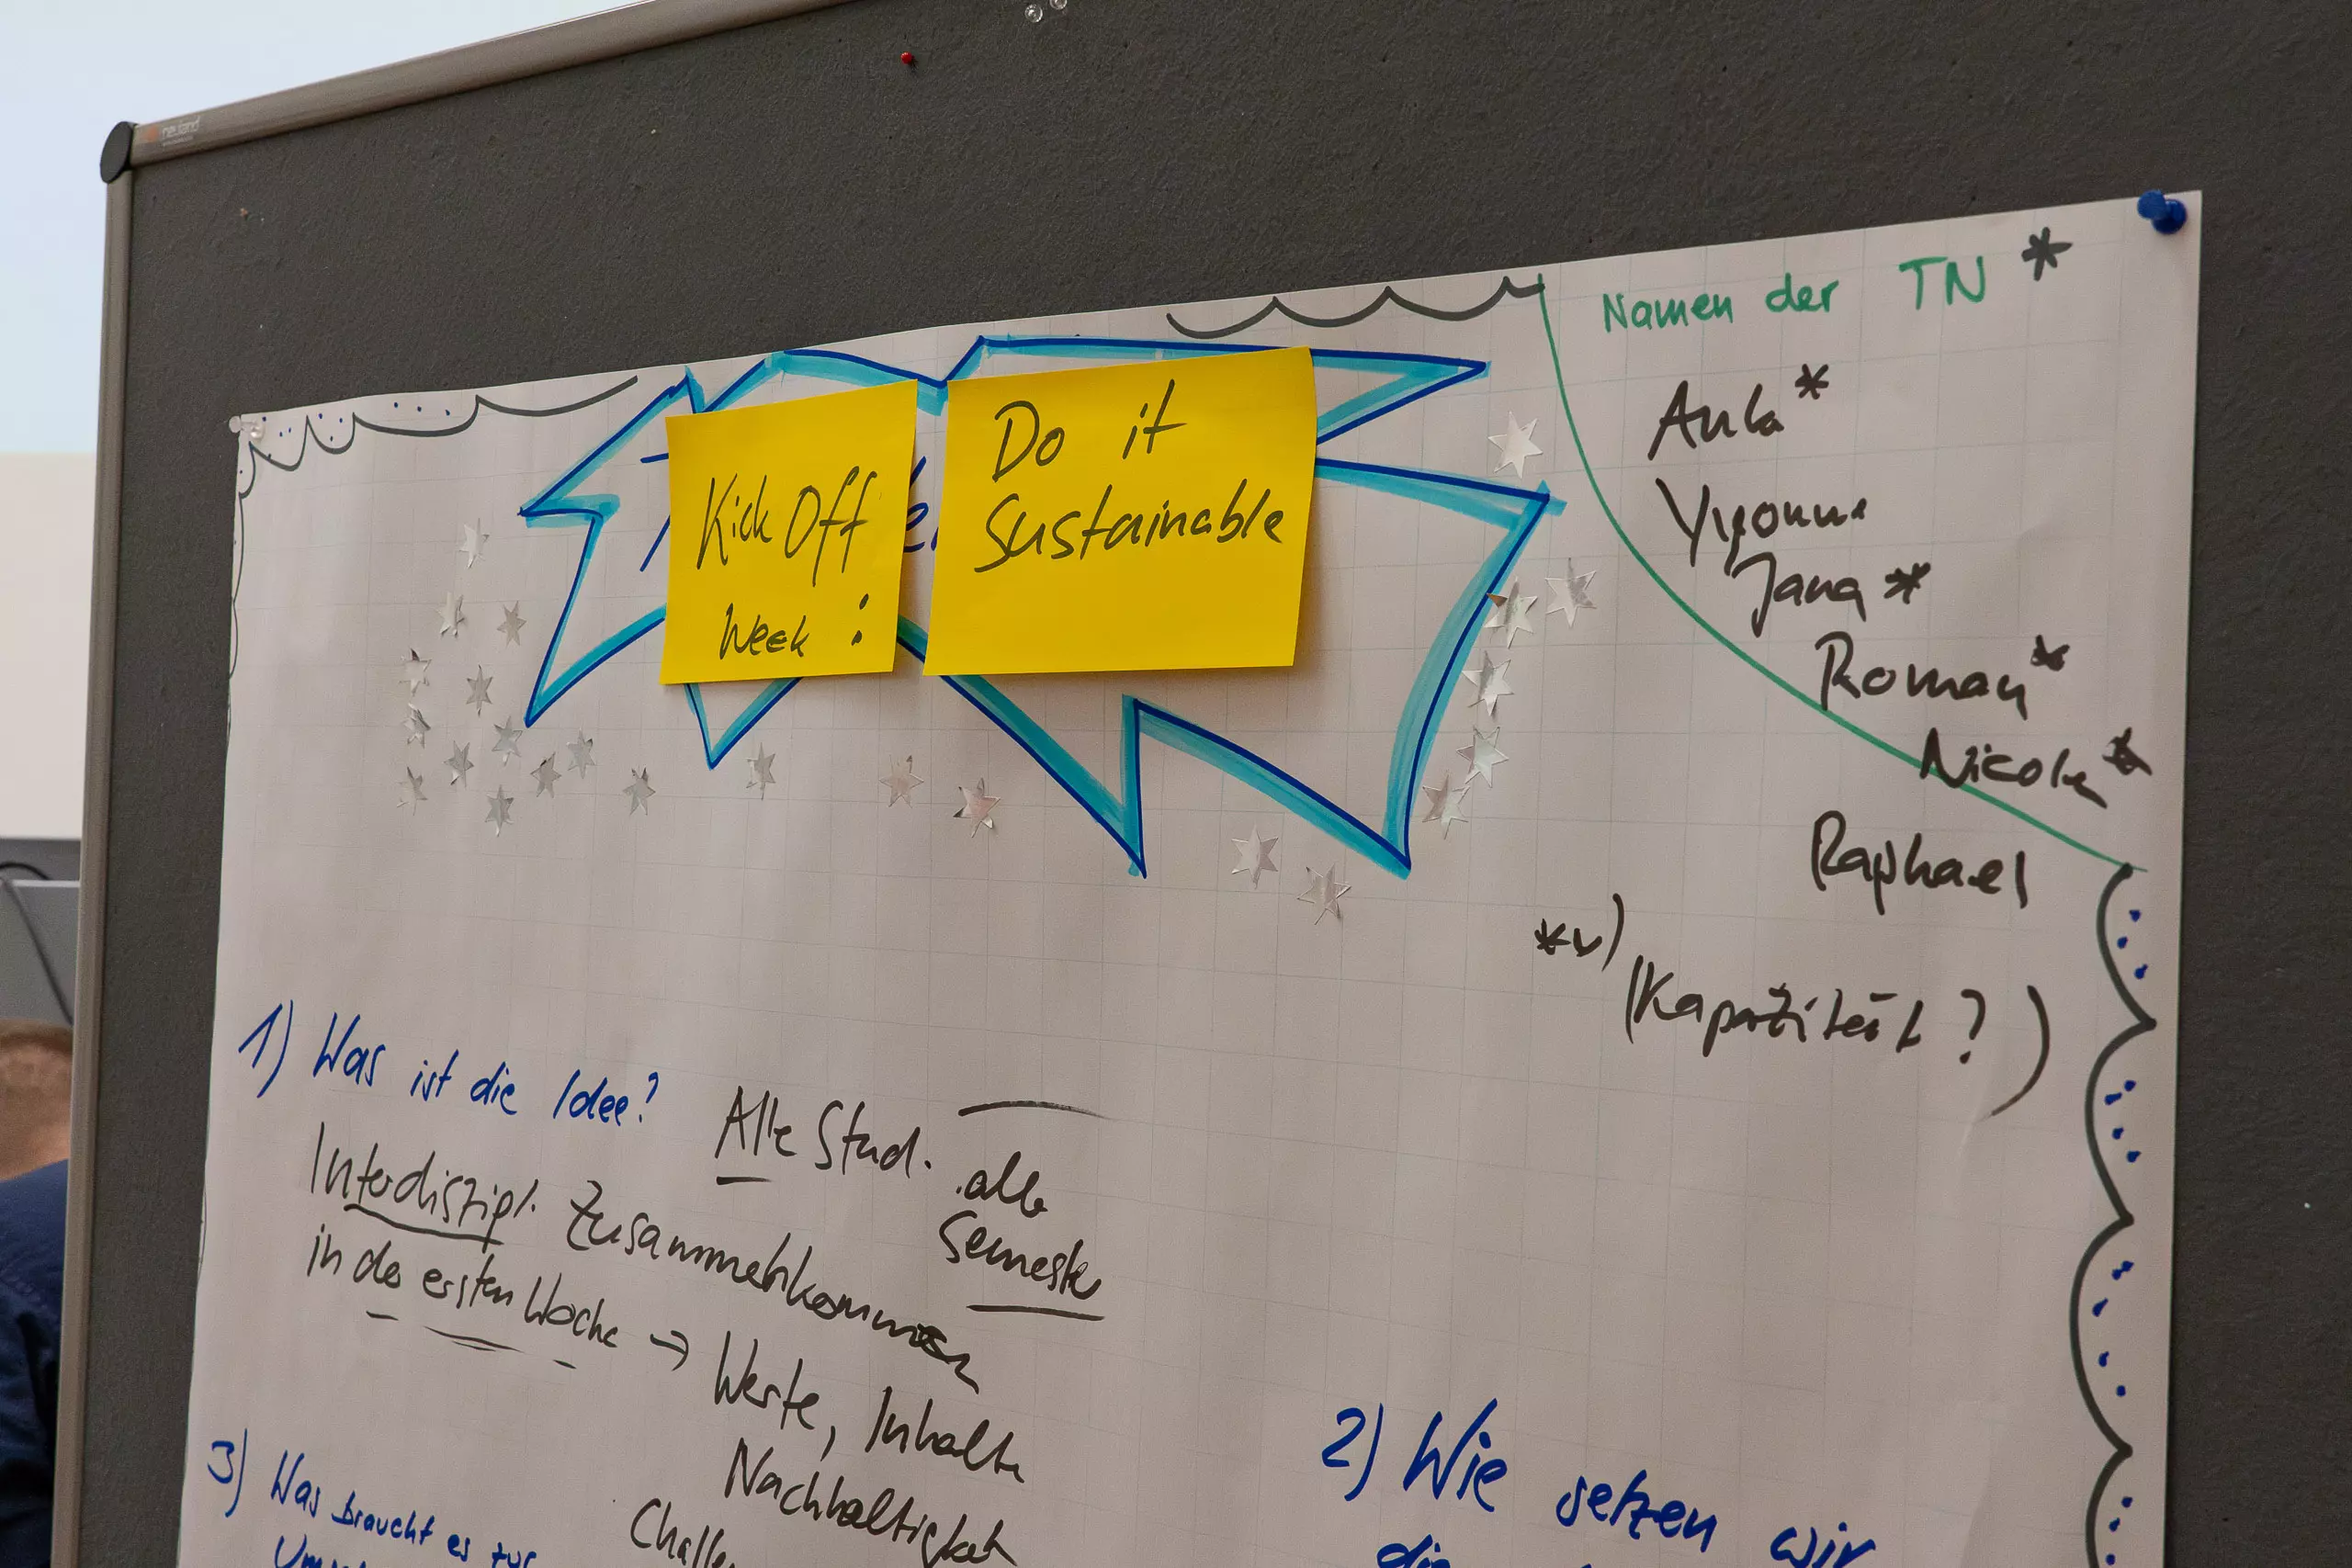 neuland
Kick Off
Week :
Do it
Sustainable
Namen der TN *
Anka *
Yvonne
Jana *
Roman *
Nicole *
Raphael
(Kapazität?)
1) Was ist die Idee?
Alle Stud.
alle
Semester
Interdiszipl. Zusammenkommen
in der ersten Woche → Werte, Inhalte
Nachhaltigkeit
3) Was braucht es zur
2) Wie setzen wir
die